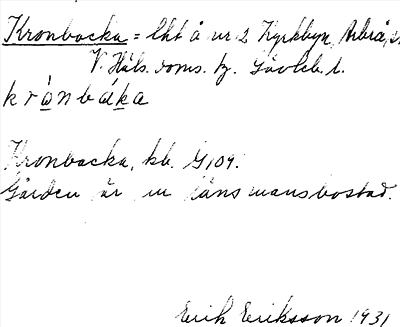 Kronbacka = lht å nr 2 Kyrkbyn, Arbrå, s
V. Häls. doms. hz. Gävleb. l.
krònbáka
Kronbacka, kb. G, 09.
Gården är en länsmansbostad.
Erik Eriksson 1931